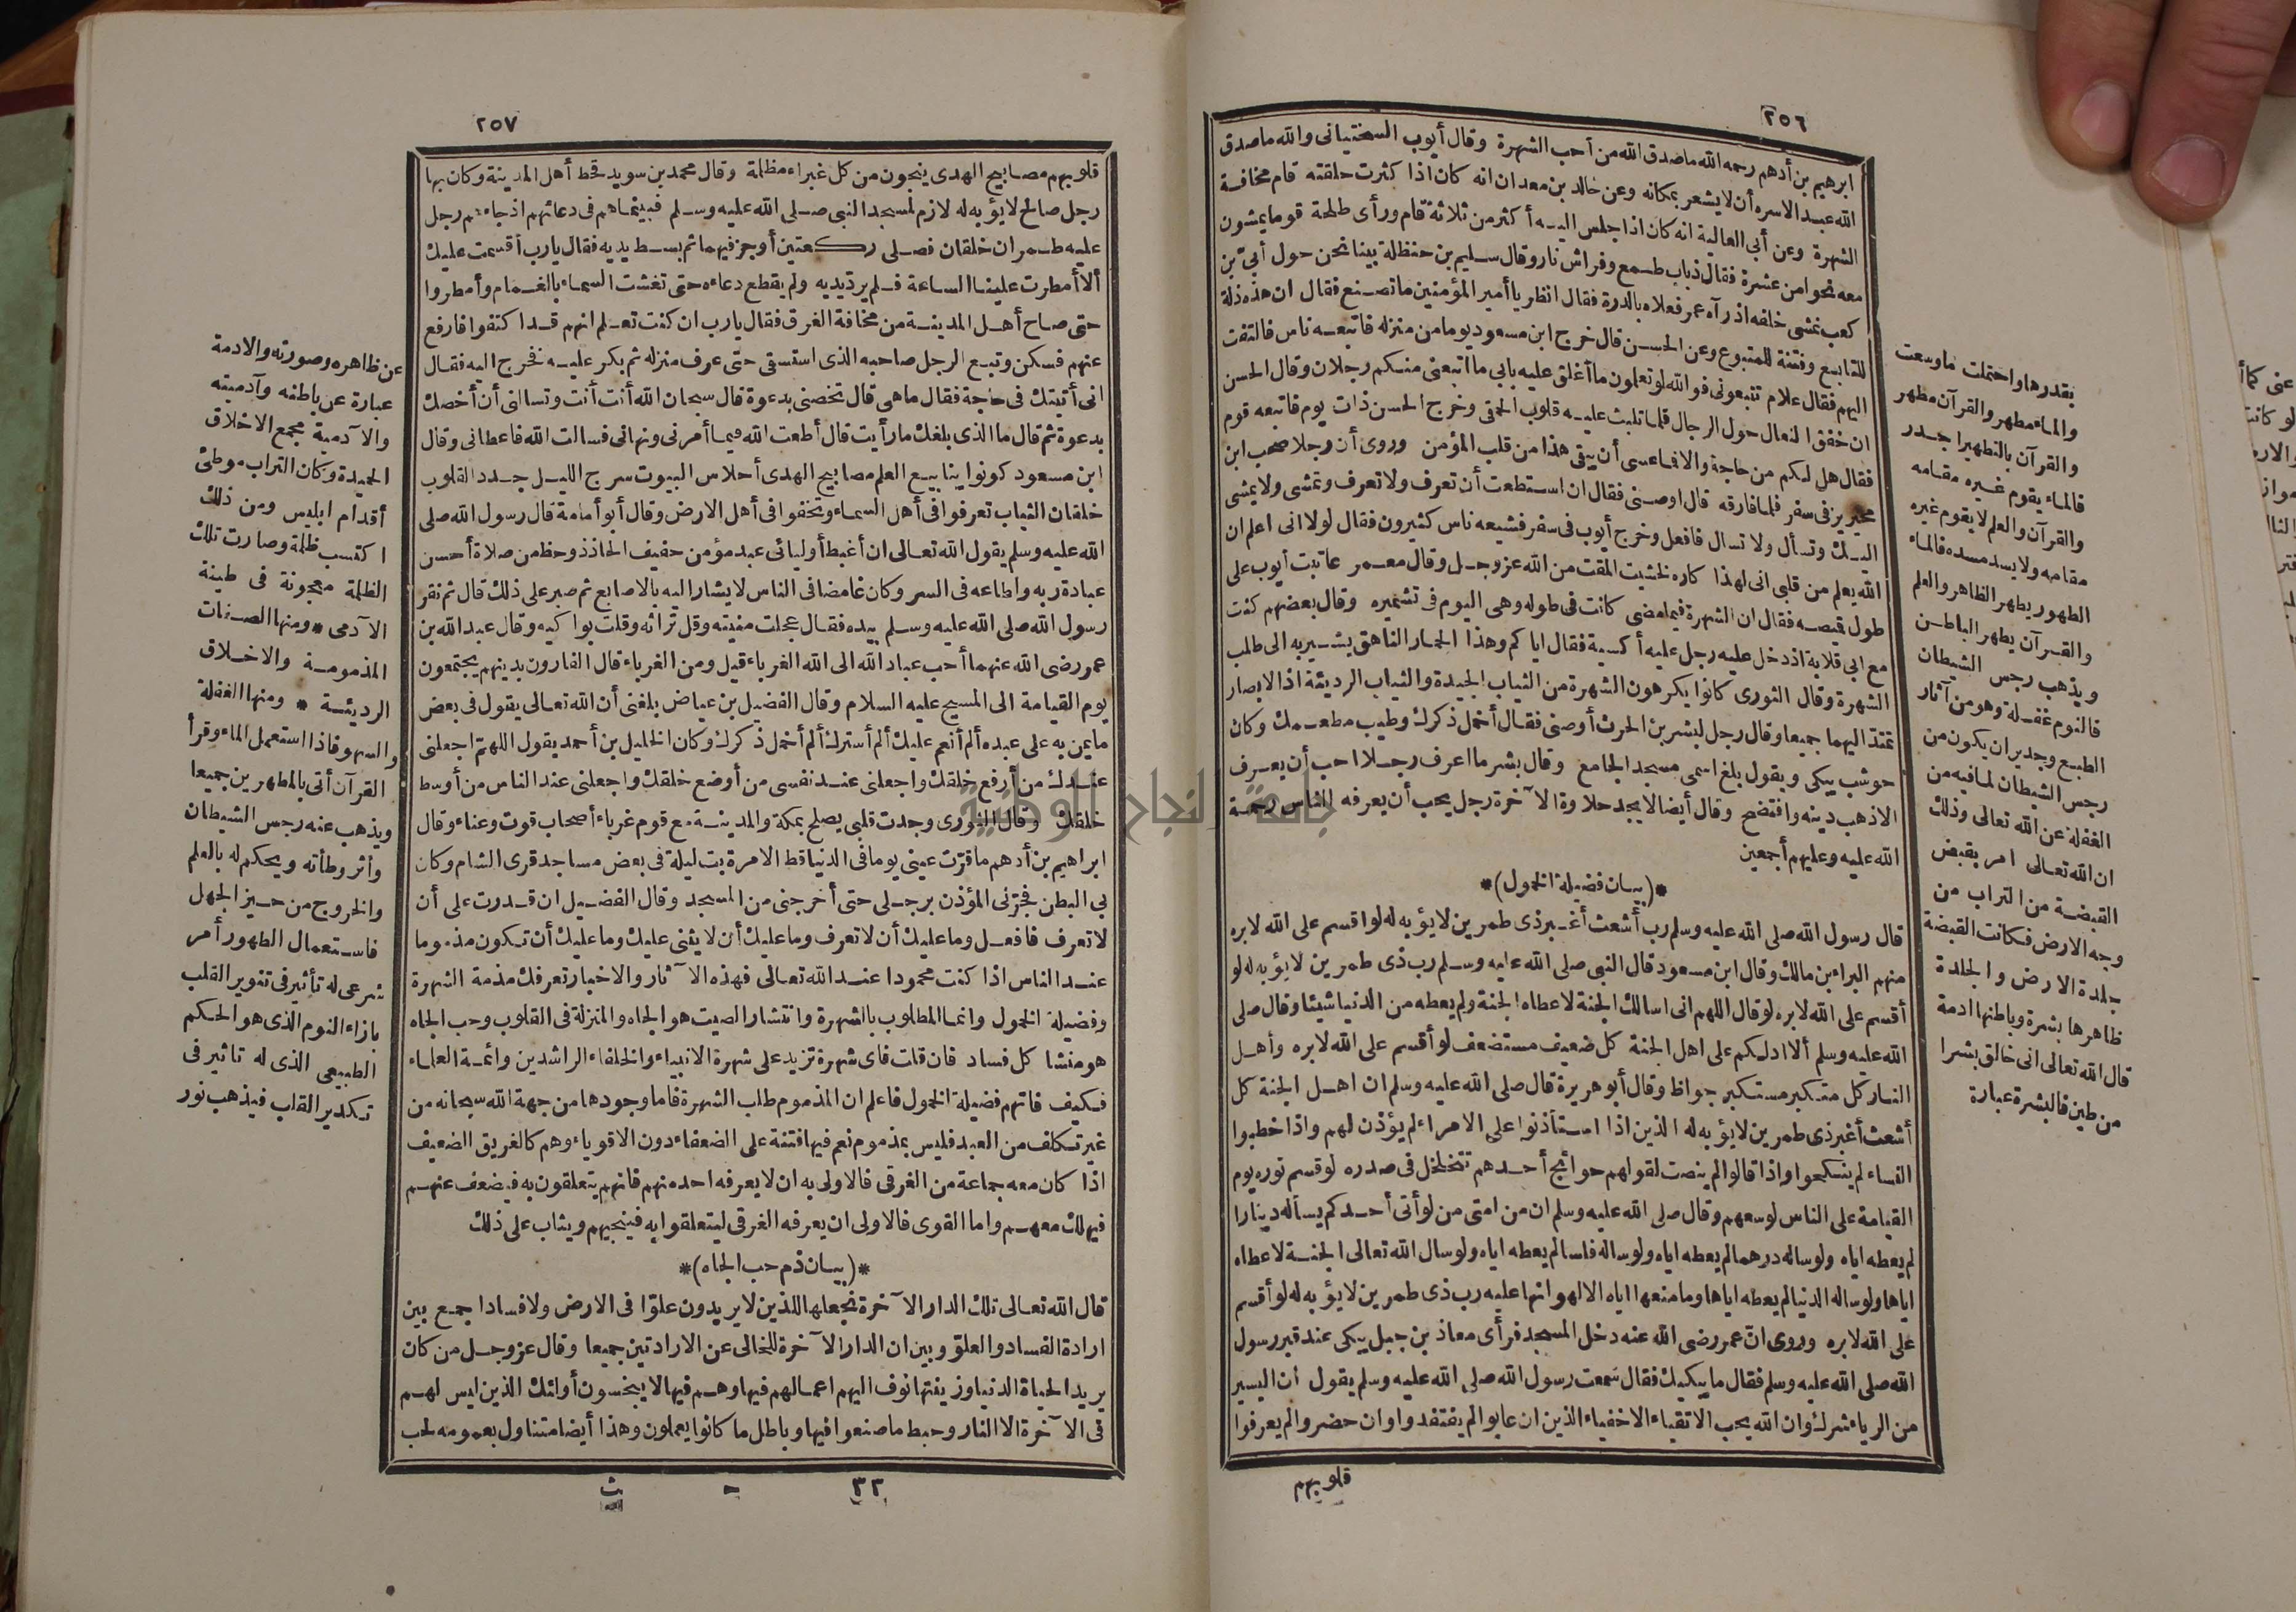 ٢٥٦
ابرهيم بن أدهم رحمه الله ماصدق الله من أحب الشهرة وقال أيوب السختياني والله ماصدق
الله عبد الاسره أن لا يشعر بمكانه وعن خالد بن معدان انه كان اذا كثرت حلقته قام مخافة
الشهرة وعن أبى العالية انه كان اذا جلس اليه أكثر من ثلاثة قام ورأى طلحة قوما يمشون
معه نحوا من عشرة فقال ذباب طمع وفراش نار وقال سليم بن حنظلة بينا نحن حول أبىّ بن
كعب نمشى خلفه اذ رآه عمر فعلاه بالدرة فقال انظر يا أمير المؤمنين ما تصنع فقال ان هذه ذلة
للتابع وفتنة للمتبوع وعن الحسن قال خرج ابن مسعود يوما من منزله فاتبعه ناس فالتفت
اليهم فقال علام تتبعونى فوالله لو تعلمون ما أغلق عليه بابى ما اتبعنى منكم رجلان وقال الحسن
ان خفق النعال حول الرجال قلما تلبث عليه قلوب الحمقى وخرج الحسن ذات يوم فاتبعه قوم
فقال هل لكم من حاجة والا فما عسى أن يبقى هذا من قلب المؤمن وروى أن رجلا صحب ابن
محيريز فى سفر فلما فارقه قال اوصنى فقال ان استطعت أن تعرف ولا تعرف وتمشى ولا يمشى
اليك وتسأل ولا تسال فافعل وخرج أيوب فى سفر فشيعه ناس كثيرون فقال لولا انى اعلم ان
الله يعلم من قلبى انى لهذا كاره لخشيت المقت من الله عز وجل وقال معمر عاتبت أيوب على
طول قميصه فقال ان الشهرة فيما مضى كانت فى طوله وهى اليوم فى تشميره وقال بعضهم كنت
مع ابى قلابة اذ دخل عليه رجل عليه أكسية فقال اياكم وهذا الحمار الناهق يشير به الى طلب
الشهرة وقال الثورى كانوا يكرهون الشهرة من الثياب الجيدة والثياب الرديئة اذ الابصار
تمتد اليهما جميعا وقال رجل لبشر بن الحرث أوصنى فقال أخمل ذكرك وطيب مطعمك وكان
حوشب يبكى ويقول بلغ اسمى مسجد الجامع وقال بشر ما اعرف رجلا احب أن يعرف
الا ذهب دينه وافتضح وقال أيضا لا يجد حلاوة الآخرة رجل يحب أن يعرفه الناس رحمة
الله عليه وعليهم أجمعين
*(بيان فضيلة الخمول)*
قال رسول الله صلى الله عليه وسلم رب أشعث أغبر ذى طمرين لا يؤبه له لو اقسم على الله لابره
منهم البراء بن مالك وقال ابن مسعود قال النبى صلى الله عليه وسلم رب ذى طمرين لا يؤبه له لو
أقسم على الله لابره لو قال اللهم انى اسالك الجنة لاعطاه الجنة ولم يعطه من الدنيا شيئا وقال صلى
الله عليه وسلم ألا ادلكم على اهل الجنة كل ضعيف مستضعف لو أقسم على الله لابره وأهل
النار كل متكبر مستكبر جواظ وقال أبو هريرة قال صلى الله عليه وسلم ان اهل الجنة كل
أشعث أغبر ذى طمرين لا يؤبه له الذين اذا استأذنوا على الامراء لم يؤذن لهم واذا خطبوا
النساء لم ينكحوا واذا قالوا لم ينصت لقولهم حوائج أحدهم تتخلخل فى صدره لو قسم نوره يوم
القيامة على الناس لوسعهم وقال صلى الله عليه وسلم ان من امتى من لو أتى أحدكم يسأله دينارا
لم يعطه اياه ولو ساله درهما لم يعطه اياه ولو ساله فلسا لم يعطه اياه ولو سال الله تعالى الجنة لاعطاه
اياها ولو ساله الدنيا لم يعطه اياها وما منعها اياه الا لهوانها عليه رب ذى طمرين لا يؤبه له لو أقسم
على الله لابره وروى انّ عمر رضى الله عنه دخل المسجد فرأى معاذ بن جبل يبكى عند قبر رسول
الله صلى الله عليه وسلم فقال ما يبكيك فقال سمعت رسول الله صلى الله عليه وسلم يقول ان اليسير
من الرياء شرك وان الله يحب الاتقياء الاخفياء الذين ان غابوا لم يفتقدوا وان حضروا لم يعرفوا
قلوبهم
بقدرها واحتملت ما وسعت
والماء مطهر والقرآن مطهر
والقرآن بالتطهير اجدر
فالماء يقوم غيره مقامه
والقرآن والعلم لا يقوم غيره
مقامه ولا يسد مسده فالماء
الطهور يطهر الظاهر والعلم
والقرآن يطهر الباطن
ويذهب رجس الشيطان
فالنوم غفلة وهو من آثار
الطبع وجدير ان يكون من
رجس الشيطان لما فيه من
الغفلة عن الله تعالى وذلك
ان الله تعالى امر بقبض
القبضة من التراب من
وجه الارض فكانت القبضة
جلدة الارض والجلدة
ظاهرها بشرة وباطنها ادمة
قال الله تعالى انى خالق بشرا
من طين فالبشرة عبارة
٢٥٧
قلوبهم مصابيح الهدى ينجون من كل غبراء مظلمة وقال محمد بن سويد قحط أهل المدينة وكان بها
رجل صالح لا يؤبه له لازم لمسجد النبى صلى الله عليه وسلم فبينما هم فى دعائهم اذ جاءهم رجل
عليه طمران خلقان فصلى ركعتين أوجز فيهما ثم بسط يديه فقال يارب أقسمت عليك
ألا أمطرت علينا الساعة فلم يرد يديه ولم يقطع دعاءه حتى تغشت السماء بالغمام وأمطروا
حتى صاح أهل المدينة من مخافة الغرق فقال يارب ان كنت تعلم انهم قد اكتفوا فارفع
عنهم فسكن وتبع الرجل صاحبه الذى استسقى حتى عرف منزله ثم بكر عليه فخرج اليه فقال
انى أتيتك فى حاجة فقال ما هى قال تخصنى بدعوة قال سبحان الله أنت أنت وتسالنى أن أخصك
بدعوة ثم قال ما الذى بلغك ما رأيت قال أطعت الله فيما أمرنى ونهانى فسالت الله فاعطانى وقال
ابن مسعود كونوا ينابيع العلم مصابيح الهدى أحلاس البيوت سرج الليل جدد القلوب
خلقان الثياب تعرفوا فى أهل السماء وتخفوا فى أهل الارض وقال أبو أمامة قال رسول الله صلى
الله عليه وسلم يقول الله تعالى ان أغبط أوليائى عبد مؤمن خفيف الحاذ ذو حظ من صلاة أحسن
عبادة ربه واطاعه فى السر وكان غامضا فى الناس لا يشار اليه بالاصابع ثم صبر على ذلك قال ثم نقر
رسول الله صلى الله عليه وسلم بيده فقال عجلت منيته وقل تراثه وقلت بواكيه وقال عبد الله بن
عمر رضى الله عنهما أحب عباد الله الى الله الغرباء قيل ومن الغرباء قال الفارون بدينهم يجتمعون
يوم القيامة الى المسيح عليه السلام وقال الفضيل بن عياض بلغنى أن الله تعالى يقول فى بعض
ما يمن به على عبده ألم أنعم عليك ألم أسترك ألم أخمل ذكرك وكان الخليل بن أحمد يقول اللهم اجعلنى
عندك من أرفع خلقك واجعلنى عند نفسى من أوضع خلقك واجعلنى عند الناس من أوسط
خلقك وقال الثورى وجدت قلبى يصلح بمكة والمدينة مع قوم غرباء أصحاب قوت وعناء وقال
ابراهيم بن أدهم ما قرّت عينى يوما فى الدنيا قط الا مرة بت ليلة فى بعض مساجد قرى الشام وكان
بى البطن فجرّنى المؤذن برجلى حتى أخرجنى من المسجد وقال الفضيل ان قدرت على أن
لا تعرف فافعل وما عليك أن لا تعرف وما عليك أن لا يثنى عليك وما عليك أن تكون مذموما
عند الناس اذا كنت محمودا عند الله تعالى فهذه الآثار والاخبار تعرفك مذمة الشهرة
وفضيلة الخمول وانما المطلوب بالشهرة وانتشار الصيت هو الجاه والمنزلة فى القلوب وحب الجاه
هو منشا كل فساد فان قلت فاى شهرة تزيد على شهرة الانبياء والخلفاء الراشدين وائمة العلماء
فكيف فاتهم فضيلة الخمول فاعلم ان المذموم طلب الشهرة فاما وجودها من جهة الله سبحانه من
غير تكلف من العبد فليس بمذموم نعم فيها فتنة على الضعفاء دون الاقوياء وهم كالغريق الضعيف
اذا كان معه جماعة من الغرقى فالاولى به ان لا يعرفه احد منهم فانهم يتعلقون به فيضعف عنهم
فيهلك معهم واما القوى فالاولى ان يعرفه الغرقى ليتعلقوا به فينجيهم ويثاب على ذلك
*(بيان ذم حب الجاه)*
قال الله تعالى تلك الدار الآخرة نجعلها للذين لا يريدون علوّا فى الارض ولا فسادا جمع بين
ارادة الفساد والعلوّ وبين ان الدار الآخرة للخالى عن الارادتين جميعا وقال عز وجل من كان
يريد الحياة الدنيا وزينتها نوف اليهم اعمالهم فيها وهم فيها لا يبخسون أولئك الذين ليس لهم
فى الآخرة الا النار وحبط ما صنعوا فيها وباطل ما كانوا يعملون وهذا أيضا متناول بعمومه لحب
٣٢ - ث
عن ظاهره وصورته والادمة
عبارة عن باطنه وآدميته
والآدمية مجمع الاخلاق
الحميدة وكان التراب موطئ
أقدام ابليس ومن ذلك
اكتسب ظلمة وصارت تلك
الظلمة معجونة فى طينة
الآدمى * ومنها الصفات
المذمومة والاخلاق
الرديئة * ومنها الغفلة
والسهو فاذا استعمل الماء وقرأ
القرآن أتى بالمطهرين جميعا
ويذهب عنه رجس الشيطان
وأثر وطأته ويحكم له بالعلم
والخروج من حيز الجهل
فاستعمال الطهور أمر
شرعى له تأثير فى تنوير القلب
بازاء النوم الذى هو الحكم
الطبيعى الذى له تاثير فى
تكدير القلب فيذهب نور
جامعة النجاح الوطنية